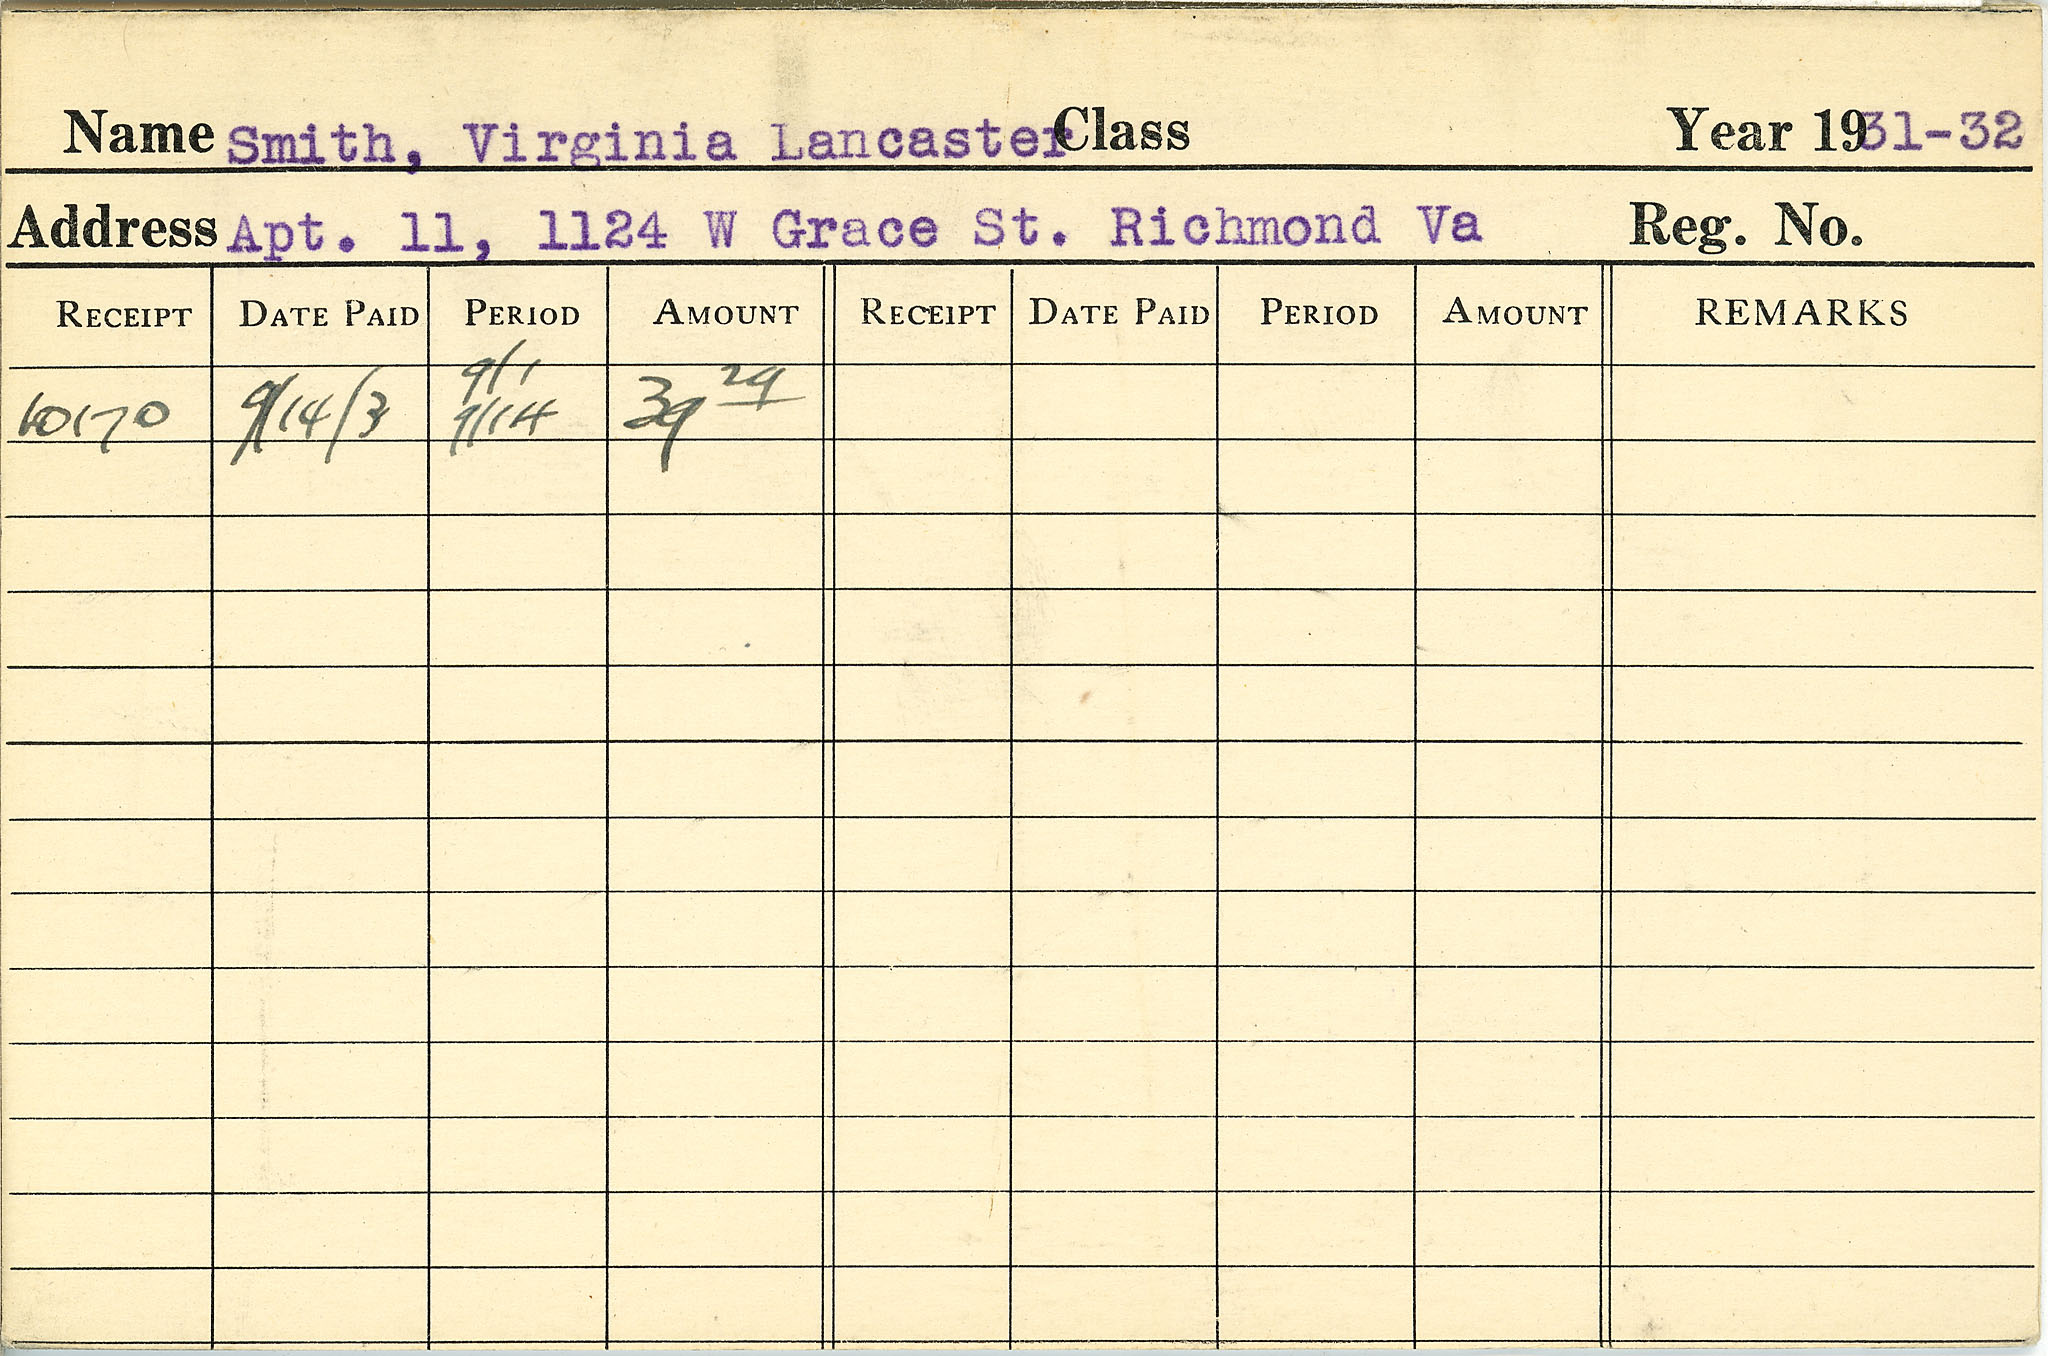 Name Smith, Virginia Lancaster Class Year 1931-32
Address Apt. 11, 1124 W Grace St. Richmond Va Reg. No.
RECEIPT DATE PAID PERIOD AMOUNT RECEIPT DATE PAID PERIOD AMOUNT REMARKS
9/1
10170 9/14/3 9/14 39 29